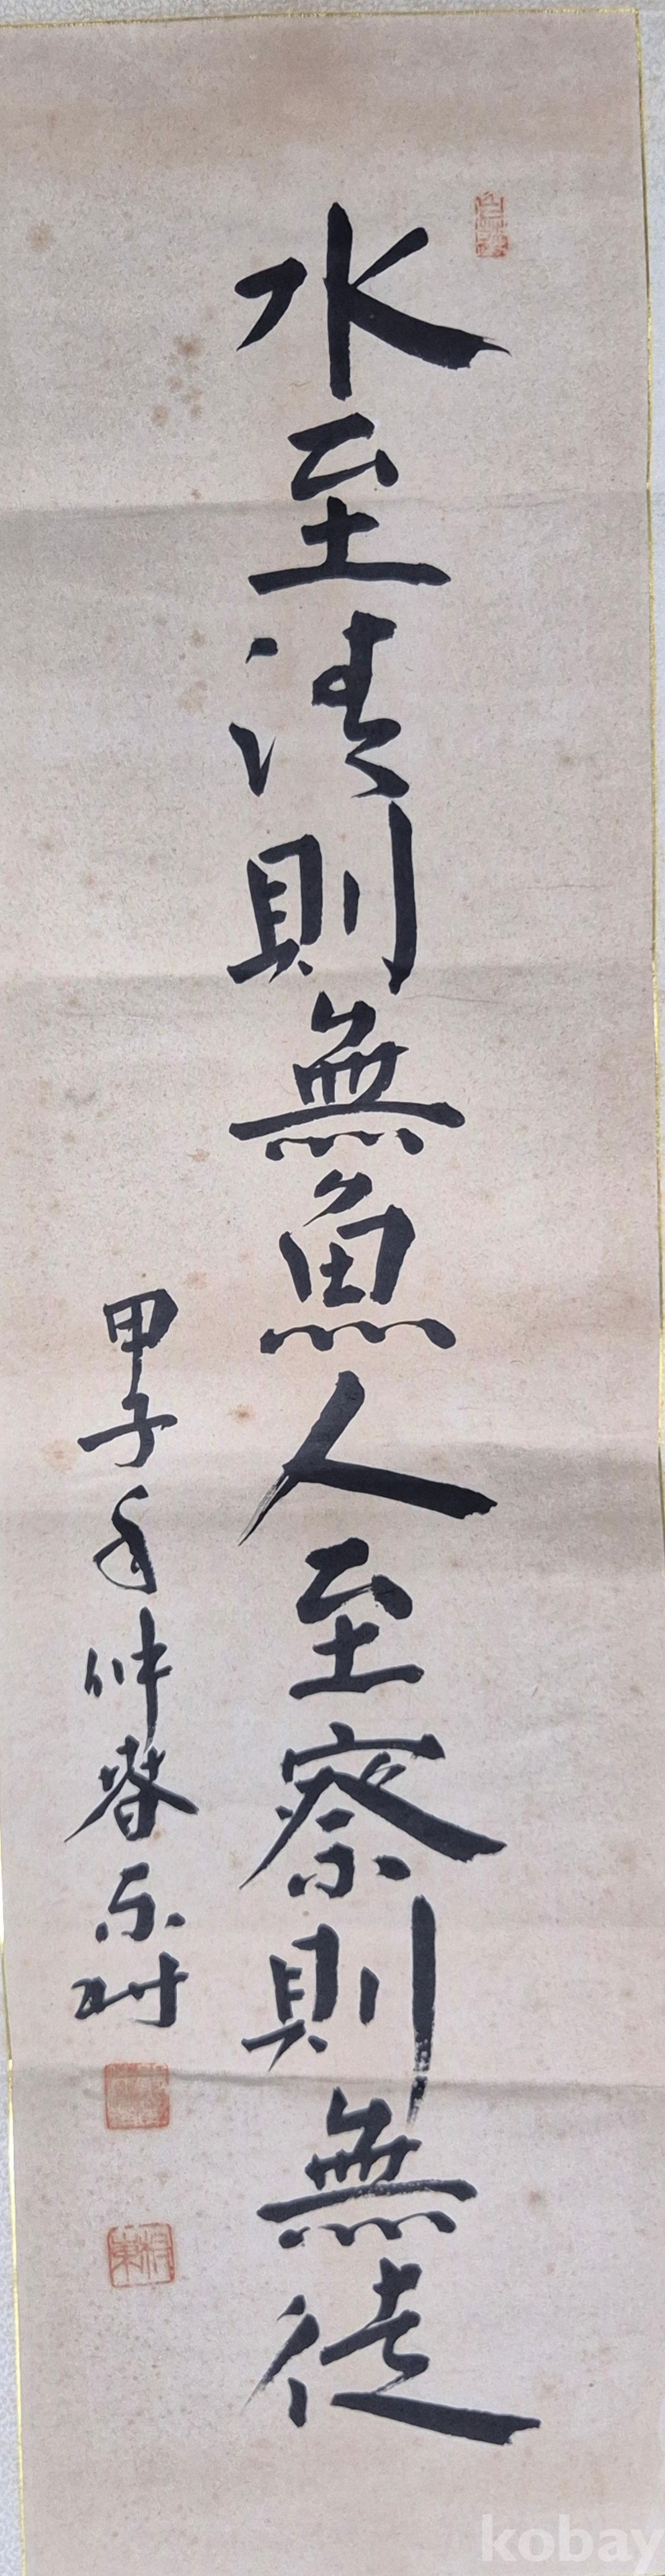 水至清則無魚人至察則無徒
甲子年仲春東村
東村
kobay